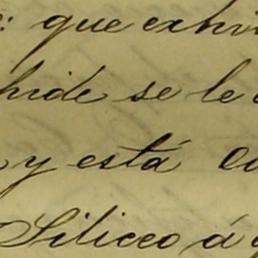 : que exhi
hide se le
y está en
Siliceo á